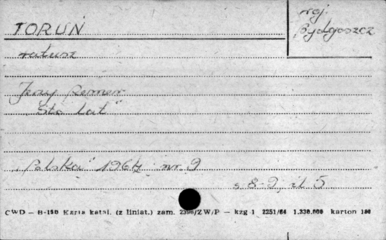 TORUŃ
woj
Bydgoszcz
ratusz
Jerzy Remer
"Sto lat"
"Polska" 1964 nr 9
s 8-9, il 5
CWD — H-180 Karta katal. (z liniat.) zam. 2300/ZW/P — kzg 1 2251/64 1.330.000 karton 100